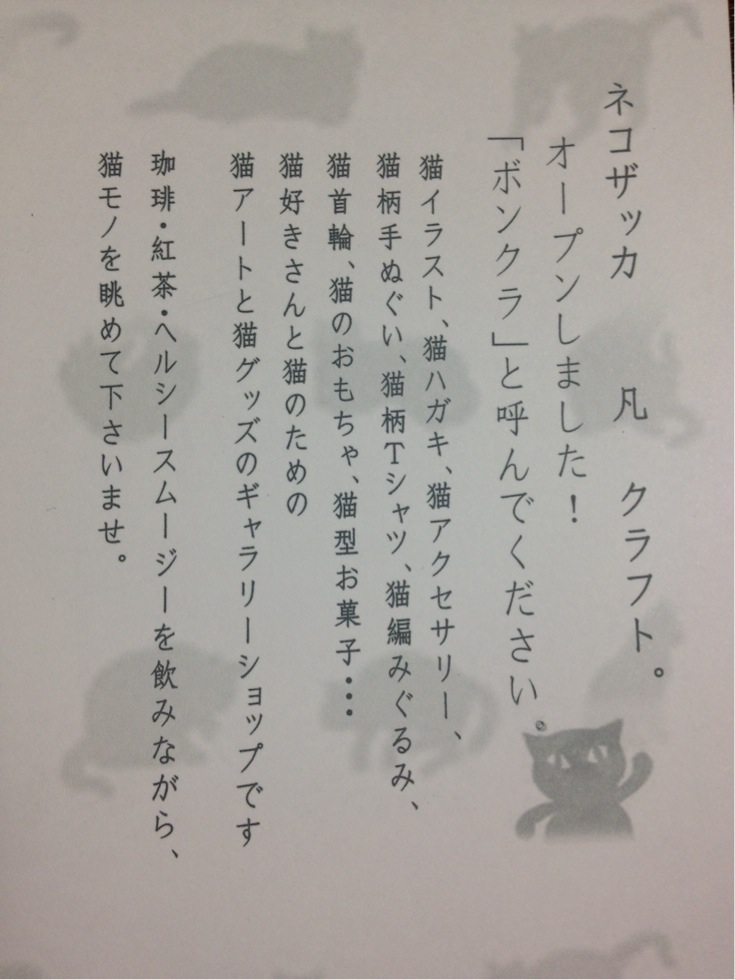 ネコザッカ　凡　クラフト。
オープンしました！
「ボンクラ」と呼んでください。
猫イラスト、猫ハガキ、猫アクセサリー、
猫柄手ぬぐい、猫柄Tシャツ、猫編みぐるみ、
猫首輪、猫のおもちゃ、猫型お菓子・・・
猫好きさんと猫のための
猫アートと猫グッズのギャラリーショップです
珈琲・紅茶・ヘルシースムージーを飲みながら、
猫モノを眺めて下さいませ。